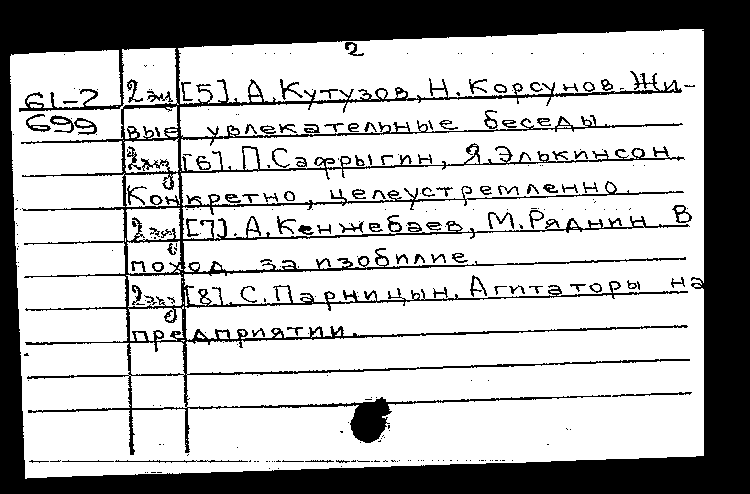 2
61-7 2 экз [5]. А. Кутузов, Н. Корсунов. Жи-
699 вые увлекательные беседы.
2 экз [6]. П. Сафрыгин, Я. Элькинсон
Конкретно, целеустремленно.
2 экз [7]. А. Кенжебаев, М. Ряднин В
поход за изобилие.
2 экз [8]. С. Парницын. Агитаторы на
предприятии.